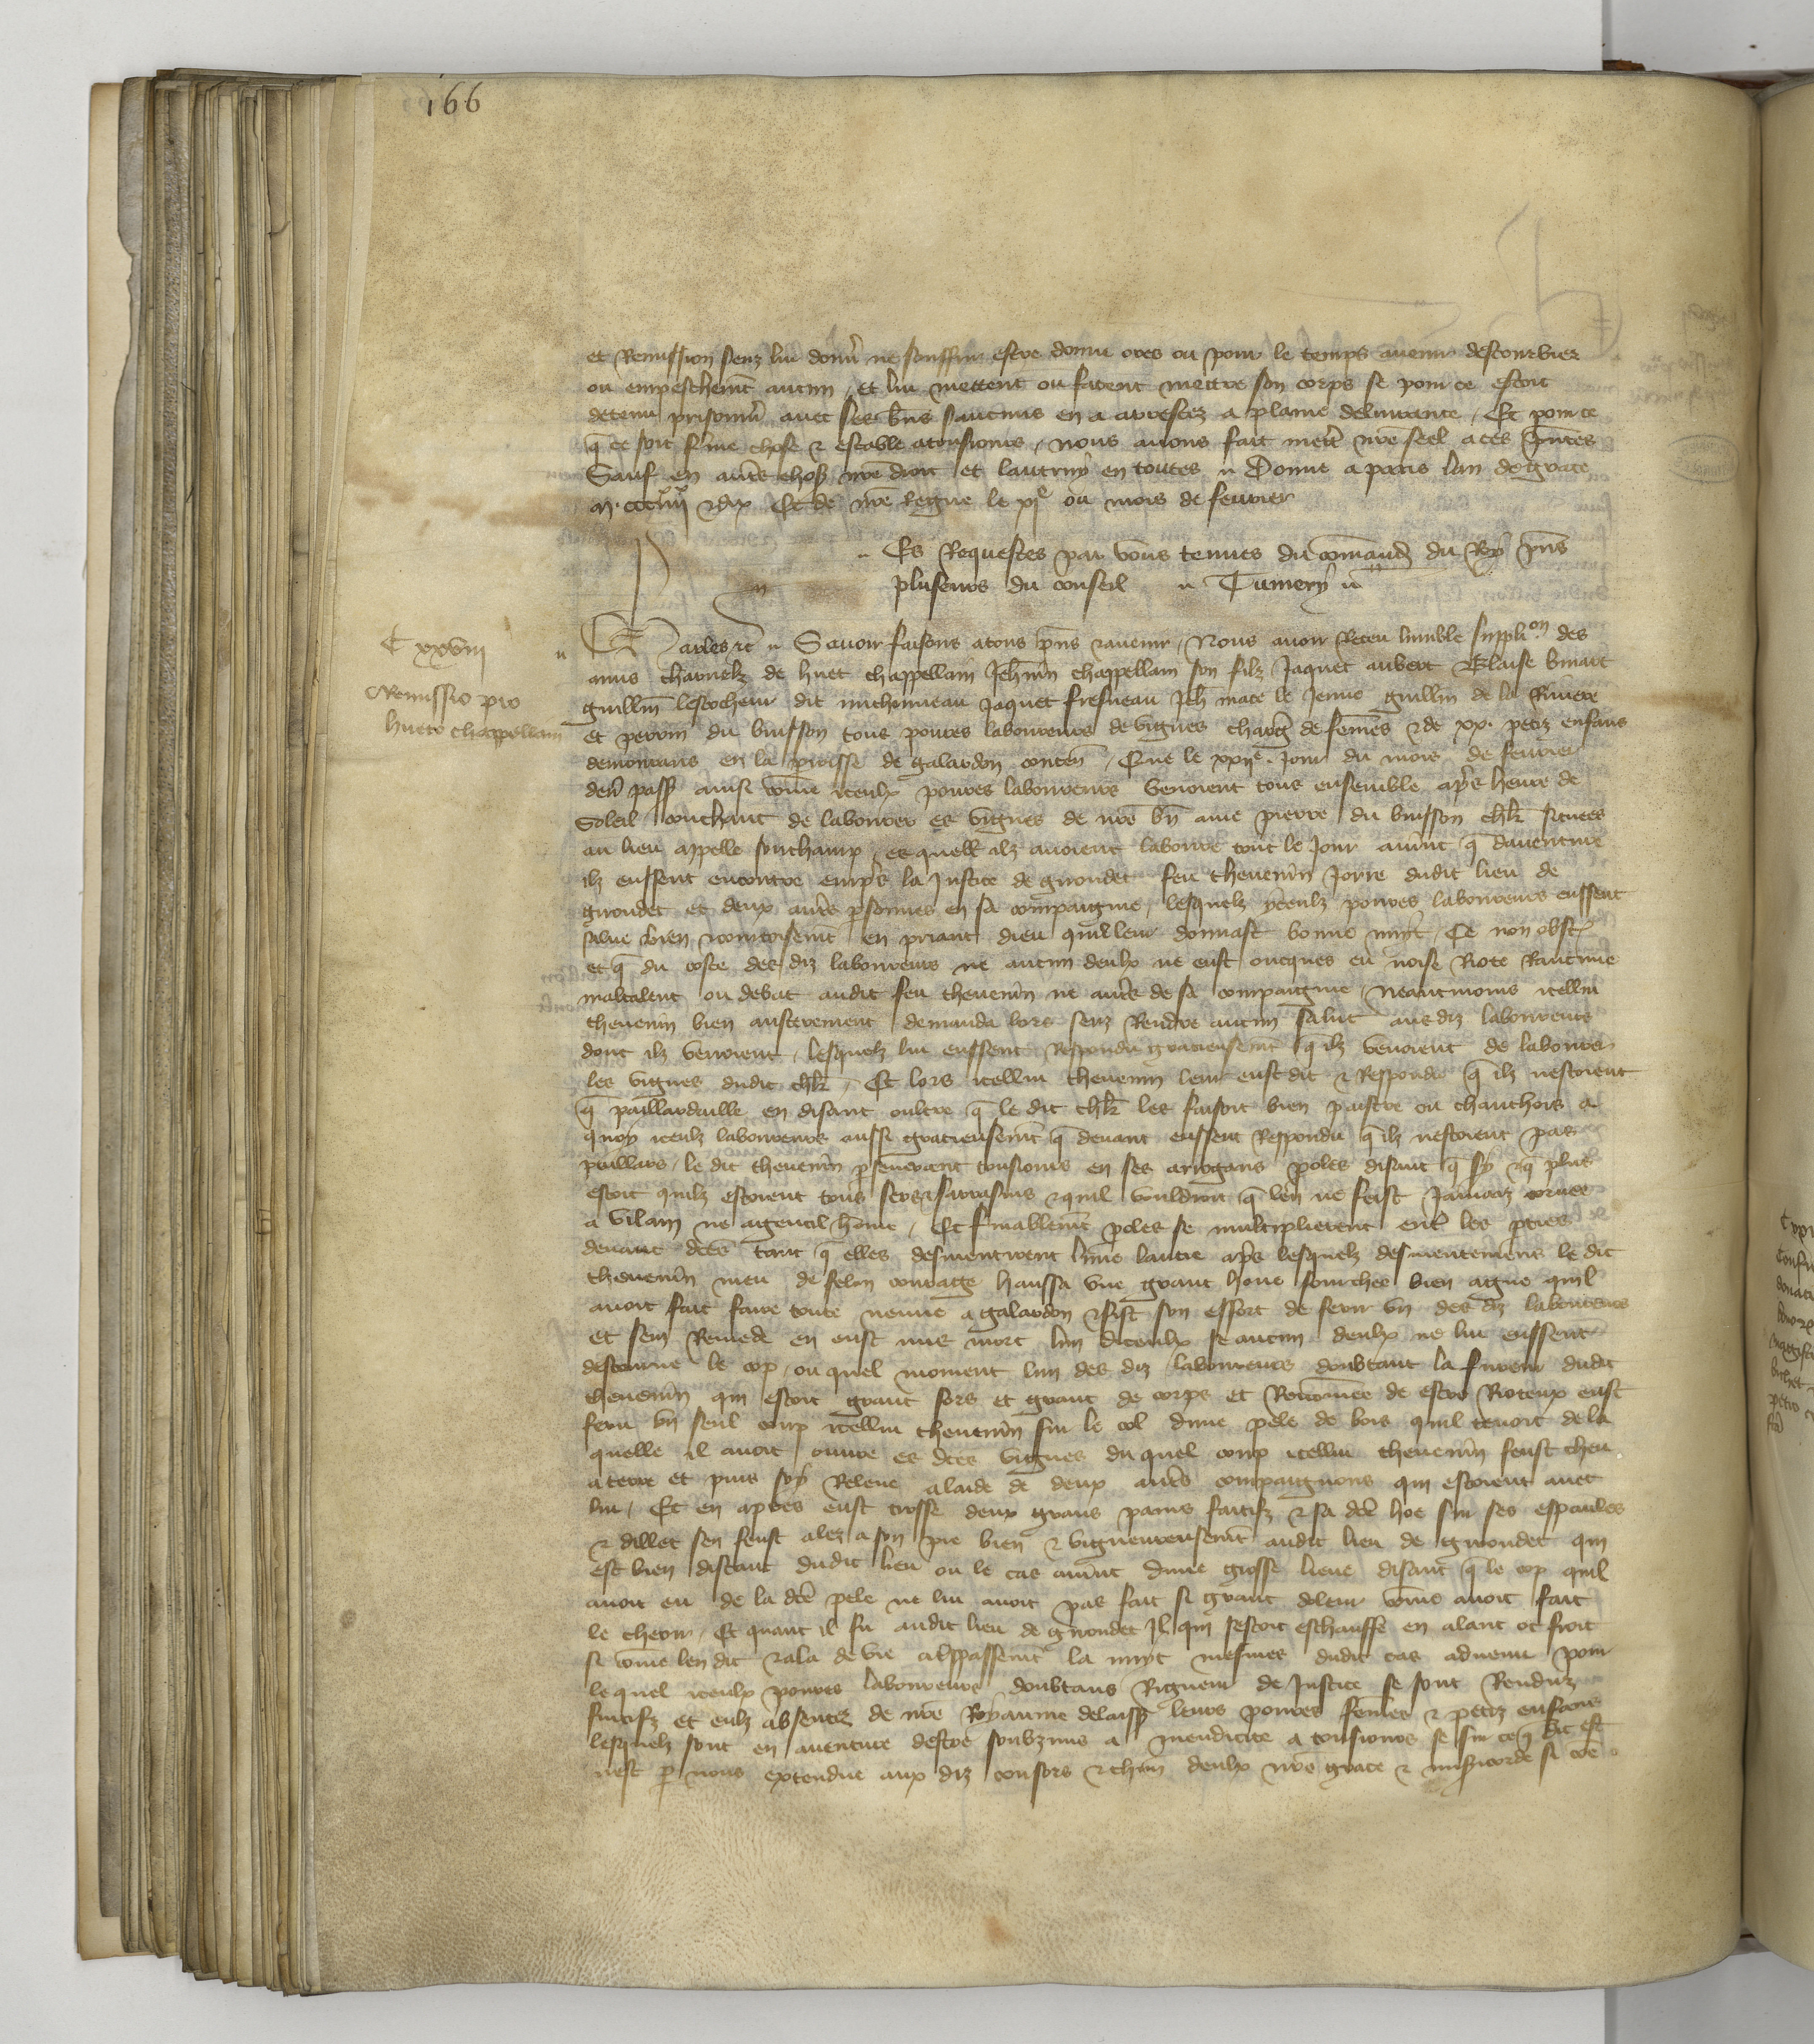 166
et Remission senz lui donner ne souffrir estre donne ores ou pour le temps avenir destourbier
ou empeschement aucun / et lui mettent ou facent mettre son corps se pour ce estoit
detenu prisonnier avec ses biens s aucuns en a arrestez a plaine delivrance / Et pour ce
q̄ ce soit ferme chose & estable a tousiours / nous avons fait mettr̄ nr̄e seel a ces p̄ntes
Sauf en autres choses nr̄e droit et lautruy en toutes Donne a paris lan de grace
M. ccciiii xx & dix Et de nr̄e Regne le xie ou mois de fevrier
Es Requestes par vous tenues du cōmandem̄ du Roy p̄ns
pluseurs du conseil Tumery
C xxviii
Remissio pro
hueto chappellain
Charles &c Savoir faisons a tous p̄ns & avenir / Nous avoir Receu humble suppli.on des
amis charnelz de huet chappellain Jeh̄nin chappellain son filz Jaquet aubert Blaise
guillm̄ lescocheur dit michonneau Jaquet fresneau Jeh̄ mace le Jeune guillin de la Riviere
et perrin du buisson tous povres laboureurs de vignes charḡ de fem̄es & de xx. petiz enfans
demourans en la p̄roisse de galardon conten̄ / Que le xxiie. Jour du mois de fevrier
den̄ pass̄ ainsi cōme iceulx povres laboureurs venoient tous ensemble apr̄s heure de
Soleil couchant de labourer es vignes de nr̄e bn̄ ame pierre du buisson chl̄r situees
au lieu appelle souchamp / es quelles ilz avoient laboure tout le Jour avint q̄ daventure
ilz eussent encontre empr̄s la Justice de guondet feu thevenin Jorre dudit lieu de
guondet et deux autres personnes en sa compaignie / lesquelz yceulz povres laboureurs eussent
salue bien & courtoisem̄t en priant dieu quil leur donnast bonne nuyt / Ce non obst̄
et q̄ du coste des diz laboureurs ne aucun deulx ne eust oncques eu noise Riote Rancune
maltalent ou debat audit feu thevenin ne autres de sa compaignie / Neantmoins icellui
thevenin bien austerement demanda lors senz Rendre aucun salut ausdiz laboureurs
dont ilz venoient / lesquelz lui eussent Respondu gracieusem̄t q̄ ilz venoient de labourer
les vignes dudit chl̄r / Et lors icellui thevenin leur eust dit & Respondu q̄ ilz nestoient
q̄ paillardaille en disant oultre q̄ le dit chl̄r les faisoit bien paistre ou chanthois a
quoy iceulz laboureurs aussi gracieusem̄t q̄ devant eussent Respondu q̄ ilz nestoient pas
paillars / le dit thevenin perseverant tousiours en ses arrogans p̄oles disant q̄ sy & q̄ plus
estoit quilz estoient tous sers & sarrasins & quil vouldroit q̄ len ne feist Jamaiz corvees
a vilain ne a gentil home / Et finablem̄t p̄oles se multiplierent entr̄ les p̄ties
devant dc̄es tant q̄ elles desmentirent lune lautre apr̄s lesquelz desmentemens le dit
thevenin meu de felon couraige haussa une grant hove fourchee bien aigue quil
avoit fait faire toute neuve a galardon & fist son effort de ferir un des diz laboureurs
et senz Remede en eust mis mort lun diceulx se aucun deulx ne lui eussent
destourne le cop / ou quel moment lun des diz laboureurs doubtant la fureur dudit
thevenin qui estoit grant fors et grant de corps et Renōmee de estre Rioteux eust
feru un seul coup icellui thevenin sur le col dune pele de bois quil tenoit de la
quelle il avoit ouvre es dc̄es vignes du quel coup icellui thevenin feust cheu
a terre et puis soy Releve a laide de deux autres compaignons qui estoient avec
lui / Et en apres eust trosse deux grans pains faitifz & sa dc̄e hoe sur ses espaules
& dillec sen feust alez a son pie bien & viguereusem̄t audit lieu de guondet qui
est bien distant dudit lieu ou le cas avint dune grosse lieue disant q̄ le cop quil
avoit eu de la dc̄e pele ne lui avoit pas fait si grant doleur cōme avoit fait
le cheoir / Et quant il fu audit lieu de guondet Il qui sestoit eschauffe en alant ot froit
si cōme len dit & ala de vie a trespassem̄t la nuyt mesmes dudit cas advenu pour
le quel iceulx povres laboureurs doubtans Rigueur de Justice se sont Renduz
fuitifz et eulz absentez de nr̄e Royaume delaissz leurs povres fem̄es & petiz enfans
lesquelz sont en aventure destre soubzmis a mendicite a tousiours se sur ce q̄ dit est
nest p̄ nous extendue aux diz consors & chūn deulx nr̄e grace & miscorde si cōe